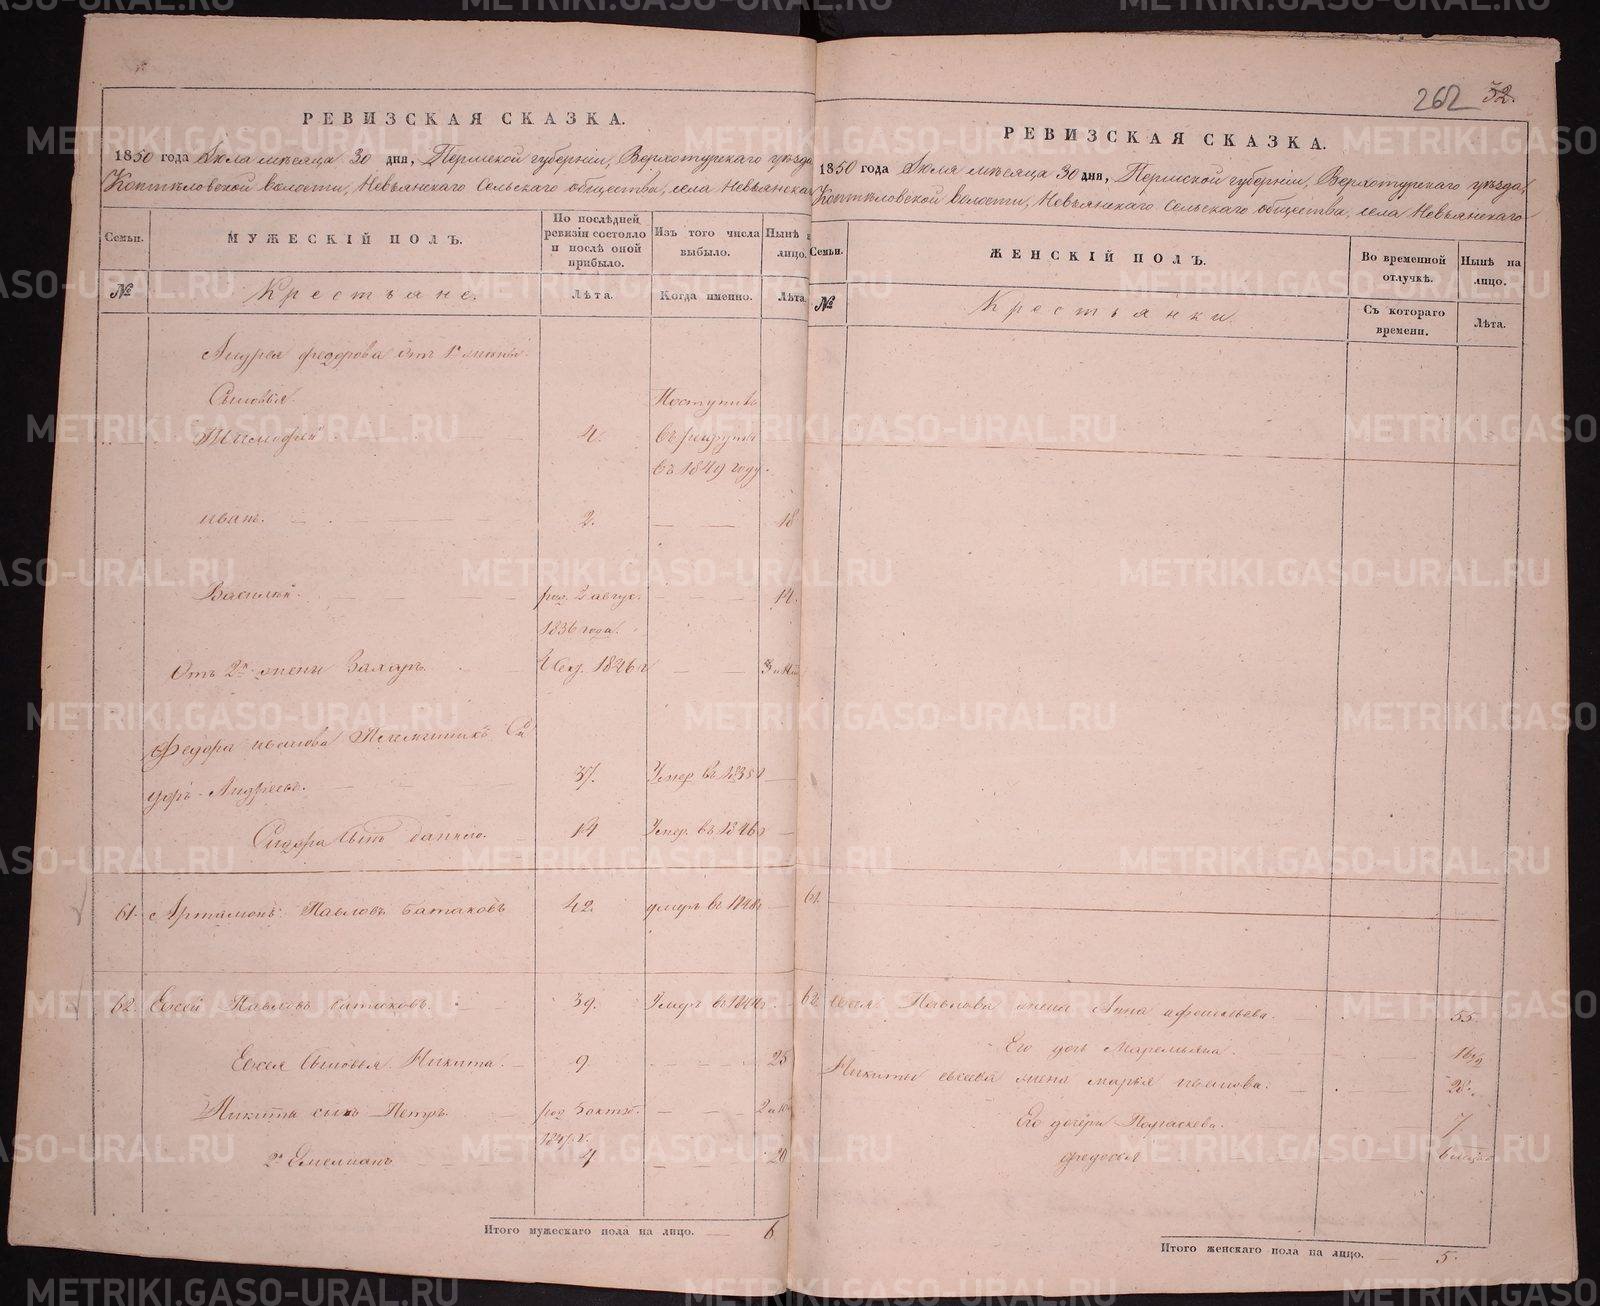 262 32.
РЕВИЗСКАЯ СКАЗКА.
1850 года Июля мѣсяца 30 дня, Пермской губерніи, Верхотурскаго уѣзда
Коптѣловской волости, Невьянскаго Сельскаго общества, села Невьянскаго
Семьи.
МУЖЕСКІЙ ПОЛЪ.
По послѣдней ревизіи состояло и послѣ оной прибыло.
Изъ того числа выбыло.
Нынѣ на лицо.
№
Крестьяне.
Лѣта.
Когда именно.
Лѣта.
Андрея Федорова отъ 1й жены
Сыновья
Тимофей 4. Поступилъ въ рекруты въ 1849 году.
Иванъ. 2. 18
Василій. род. 2 авгус. 1836 года. 14.
Отъ 2й жены Захаръ 1846 г 3
Федора Иванова Племянникъ Сидоръ Андреевъ. 37. Умер въ 1838 г
Сидора Сынъ 14 Умер. въ 1846 г
61. Артамонъ Павловъ Батаковъ 42. умеръ въ 1848 г
62. Евсей Павловъ Батаковъ. 39. Умеръ въ
Евсея Сыновья Никита. 9. 25
Никита сынъ Петръ. род 5 октяб. 1847 г. 2
2й Емельянъ 4 20
Итого мужескаго пола на лицо. 6
РЕВИЗСКАЯ СКАЗКА.
1850 года Июля мѣсяца 30 дня, Пермской губерніи, Верхотурскаго уѣзда,
Коптѣловской волости, Невьянскаго Сельскаго общества, села Невьянскаго
Семьи.
ЖЕНСКІЙ ПОЛЪ.
Во временной отлучкѣ.
Нынѣ на лицо.
№
Крестьянки.
Съ котораго времени.
Лѣта.
61.
62. Евсея Павлова жена Анна 55.
Его дочь Маремьяна. 16
Никиты Евсеева жена Марья Иванова. 28.
Его дочери 7
Федосья 6
Итого женскаго пола на лицо. 5.
METRIKI.GASO-URAL.RU